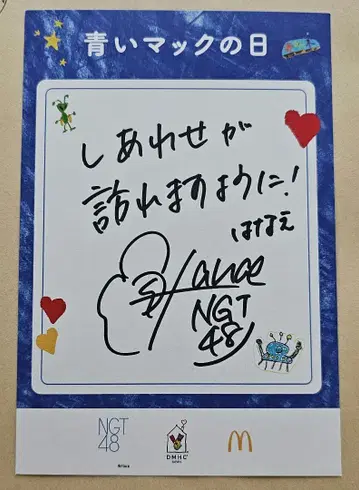 青いマックの日
しあわせが
訪れますように!
はなえ
Hanae
NGT
48
NGT
48
DMHC